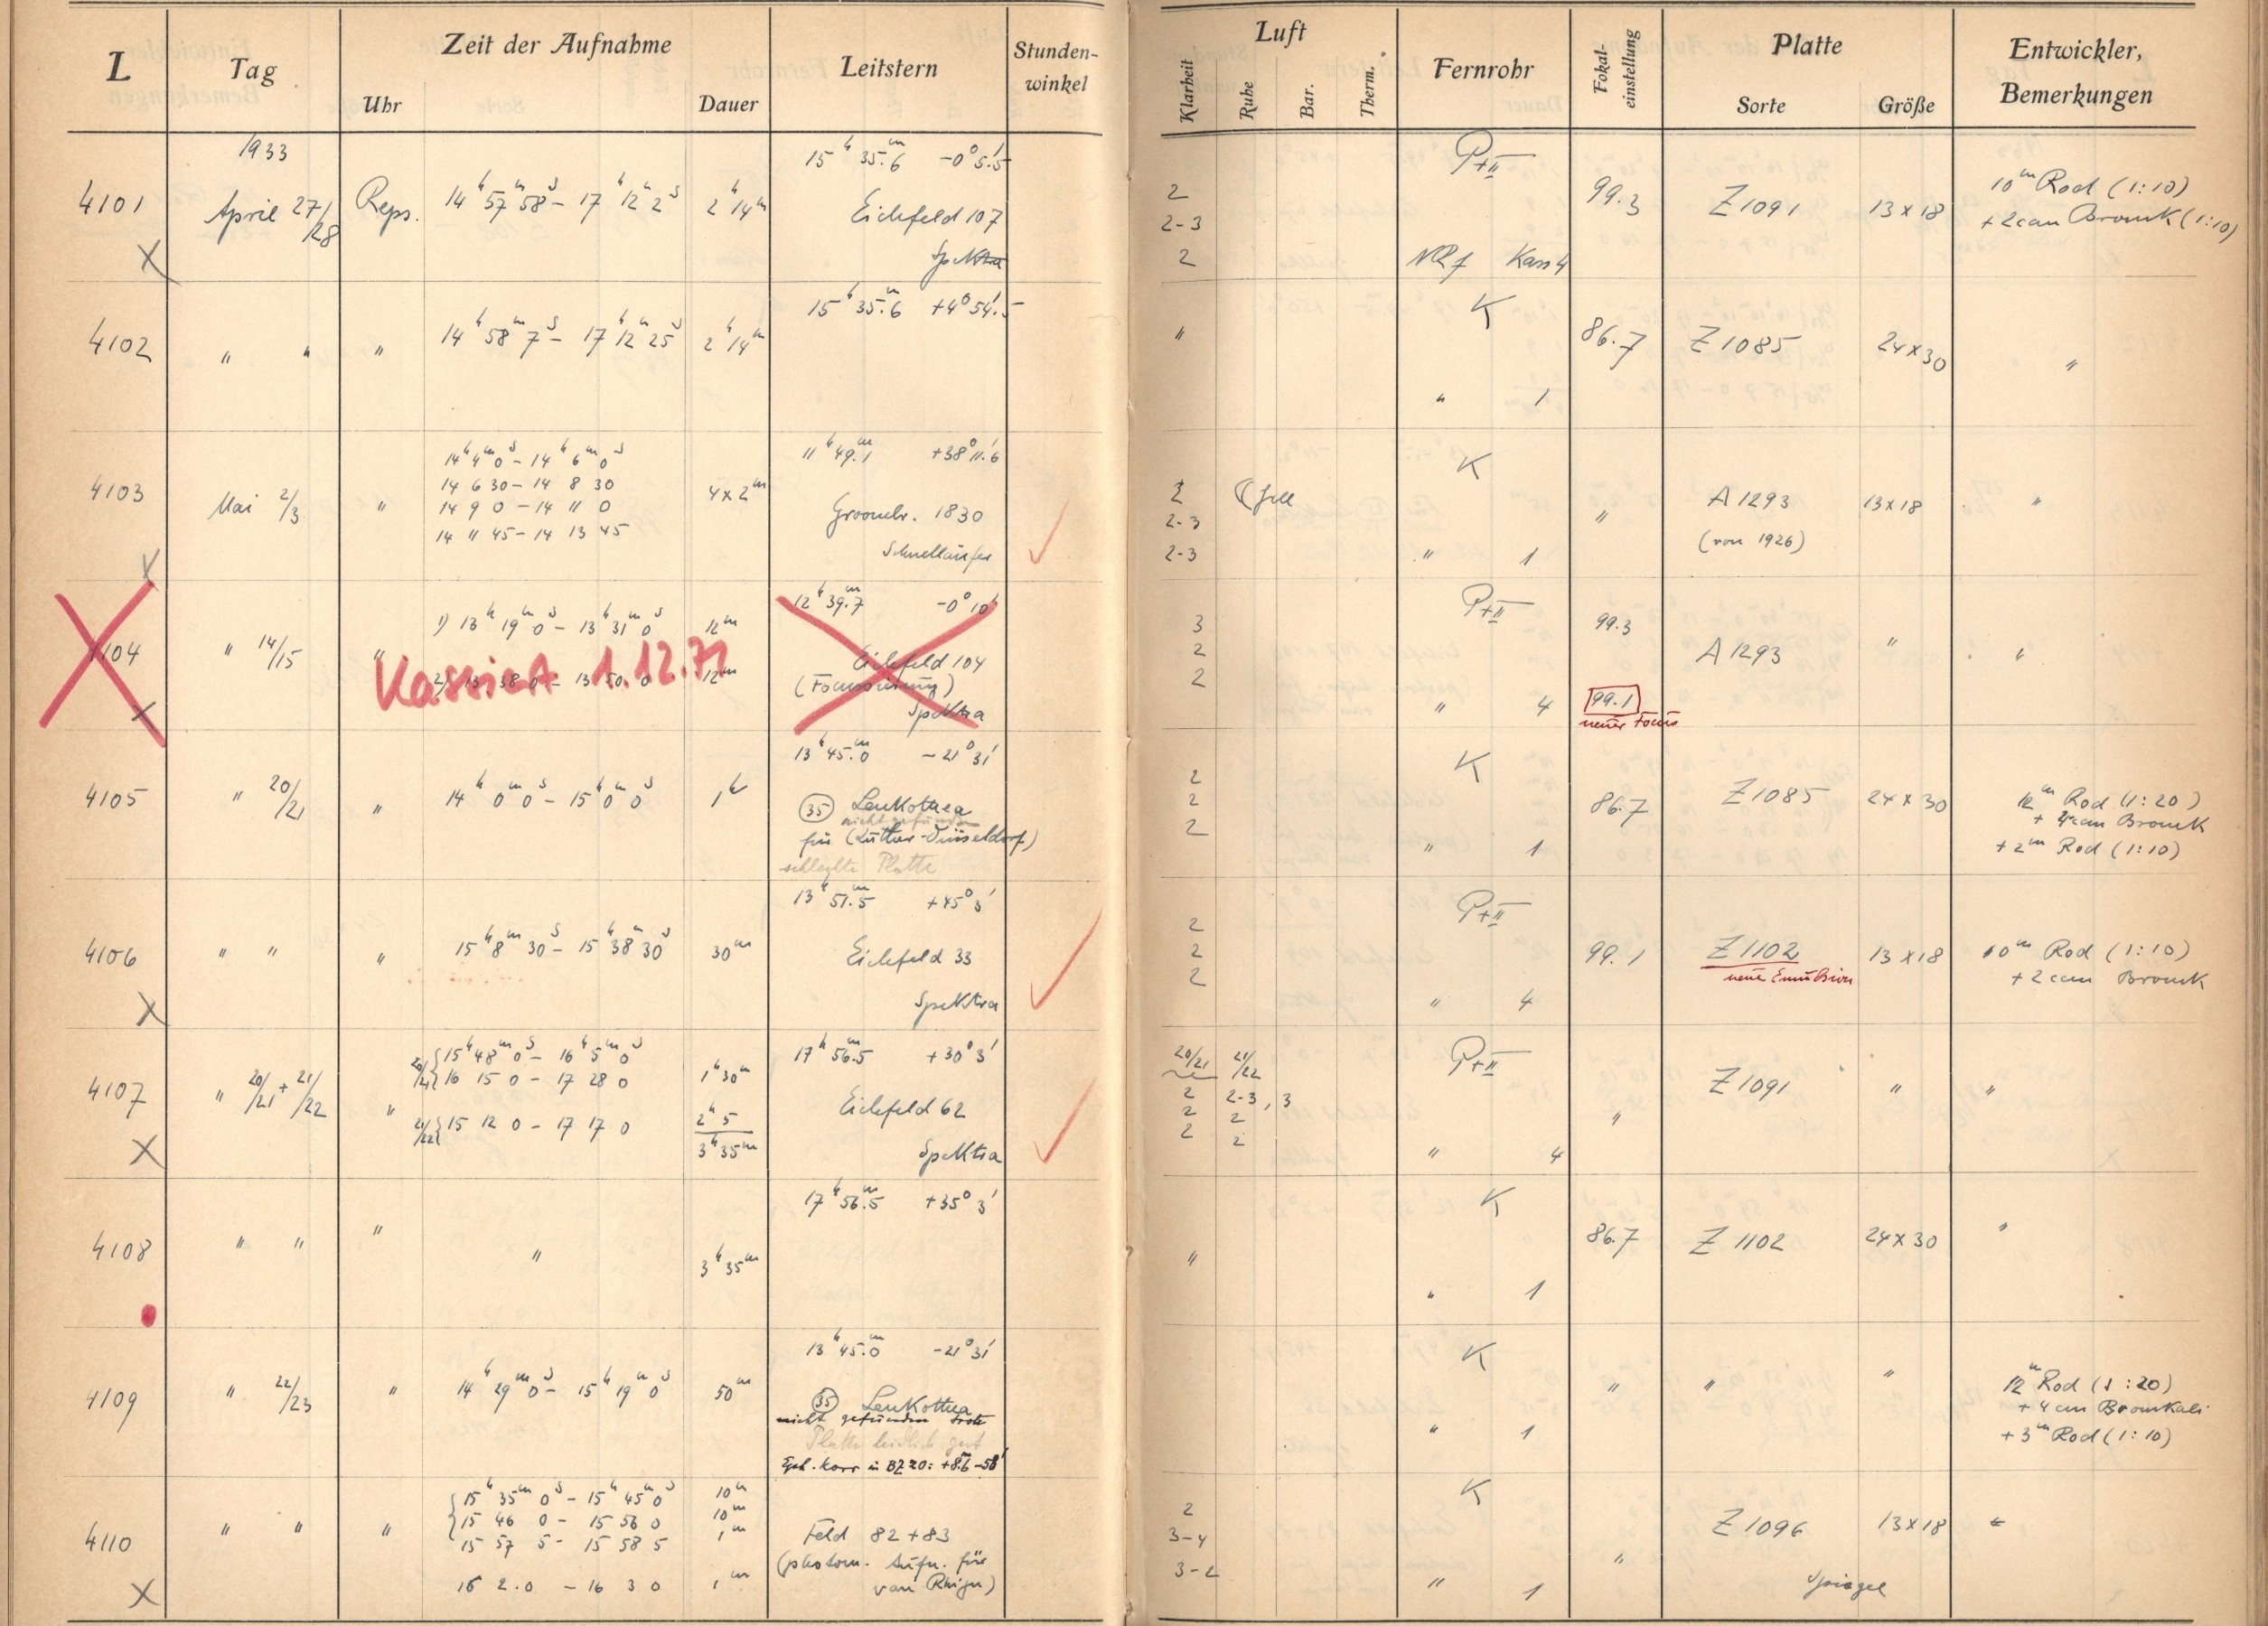 L Tag Zeit der Aufnahme Leitstern Stunden-
winkel
Uhr Dauer
Luft Fernrohr Fokal-
einstellung Platte Entwickler,
Bemerkungen
Klarheit Ruhe Bar. Therm. Sorte Größe
1933
15ʰ 35.ᵐ6 -0° 5.'5
4101 April 27/28 Reps. 14ʰ 57ᵐ 58ˢ - 17ʰ 12ᵐ 2ˢ 2ʰ 14ᵐ Eichfeld 107
Spektra
2
2-3
2
P+II
NRf Kass 4
99.3 Z 1091 13 x 18
10ᵐ Rod (1:10)
+ 2ccm Bromk (1:10)
X
15ʰ 35.ᵐ6 +4° 54.'5
4102 " " " 14ʰ 58ᵐ 7ˢ - 17ʰ 12ᵐ 25ˢ 2ʰ 14ᵐ
" K
" 1
86.7 Z 1085 24 x 30 "
11ʰ 49.ᵐ1 +38° 11.'6
14ʰ 4ᵐ 0ˢ - 14ʰ 6ᵐ 0ˢ
14 6 30 - 14 8 30
4103 Mai 2/3 " 14 9 0 - 14 11 0 4 x 2ᵐ Groombr. 1830
14 11 45 - 14 13 45
Schnelläufer
2
2-3
2-3
K
" 1
" A 1293 13 x 18 "
(von 1926)
12ʰ 39.ᵐ7 -0° 10'
4104 " 14/15 " 1) 13ʰ 19ᵐ 0ˢ - 13ʰ 31ᵐ 0ˢ 12ᵐ
2) 13 38 0 - 13 50 0 12ᵐ
Kassiert 1.12.71
Eichfeld 104
(Focussierung)
Spektra
X
3
2
2
P+II
" 4
99.3
99.1
neuer Focus
A 1293 " "
13ʰ 45.ᵐ0 -21° 31'
4105 " 20/21 " 14ʰ 0ᵐ 0ˢ - 15ʰ 0ᵐ 0ˢ 1ʰ
(35) Leukothea
nicht gefunden
für (Luther-Düsseldorf)
schlechte Platte
2
2
2
K
" 1
86.7 Z 1085 24 x 30
12ᵐ Rod (1:20)
+ 4ccm Bromk
+ 2ᵐ Rod (1:10)
13ʰ 51.ᵐ5 +45° 3'
4106 " " " 15ʰ 8ᵐ 30ˢ - 15ʰ 38ᵐ 30ˢ 30ᵐ Eichfeld 33
Spektra
X
2
2
2
P+II
" 4
99.1 Z 1102 13 x 18
neue Emulsion
10ᵐ Rod (1:10)
+ 2 ccm Bromk
17ʰ 56.ᵐ5 +30° 3'
20/21 { 15ʰ 48ᵐ 0ˢ - 16ʰ 5ᵐ 0ˢ
16 15 0 - 17 28 0 1ʰ 30ᵐ
4107 " 20/21 + 21/22 " Eichfeld 62
21/22 { 15 12 0 - 17 17 0 2ʰ 5
3ʰ 35ᵐ
Spektra
X
20/21 21/22
2 2-3, 3
2 2
2 2
P+II
" 4
" Z 1091 " "
17ʰ 56.ᵐ5 +35° 3'
4108 " " " " 3ʰ 35ᵐ
" K
" 1
86.7 Z 1102 24 x 30 "
13ʰ 45.ᵐ0 -21° 31'
4109 " 22/23 " 14ʰ 29ᵐ 0ˢ - 15ʰ 19ᵐ 0ˢ 50ᵐ
(35) Leukothea
nicht gefunden
Platte leidlich gut
Eph. Korr in BZ 20: +8.ᵐ6 -58'
K
" 1
" " "
12ᵐ Rod (1:20)
+ 4 ccm Bromkali
+ 3ᵐ Rod (1:10)
15ʰ 35ᵐ 0ˢ - 15ʰ 45ᵐ 0ˢ 10ᵐ
15 46 0 - 15 56 0 10ᵐ
4110 " " " 15 57 5 - 15 58 5 1ᵐ
16 2.0 - 16 3 0 1ᵐ
Feld 82 + 83
(photom. Aufn. für
van Rhijn)
X
2
3-4
3-2
K
" 1
" Z 1096 13 x 18 "
Spiegel